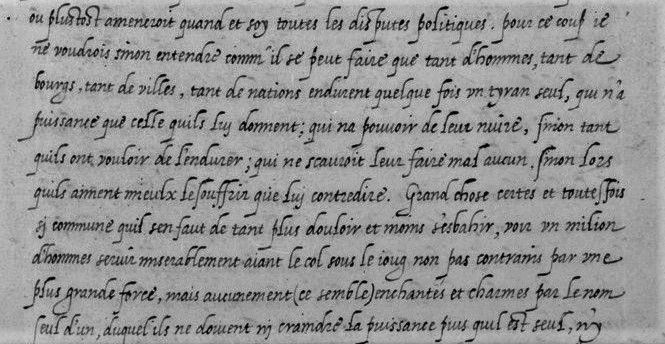 ou plustost ameneroit quand et soy toutes les disputes politiques. pour ce coup ie
ne voudrois sinon entendre comm'il se peut faire que tant d'hommes, tant de
bourgs, tant de villes, tant de nations endurent quelque fois vn tyran seul, qui n'a
puissance que celle quils luy donnent; qui na pouvoir de leur nuire, sinon tant
quils ont vouloir de l'endurer; qui ne scauroit leur faire mal aucun, sinon lors
quils aiment mieulx le souffrir que luy contredire. Grand chose certes et toutesfois
si commune quil sen faut de tant plus douloir et moins sesbahir, voir vn milion
d'hommes seruir miserablement aiant le col sous le ioug non pas contrains par vne
plus grande force, mais aucunement (ce semble) enchantes et charmes par le nom
seul d'un, duquel ils ne doiuent ny craindre la puissance puis quil est seul, n'y